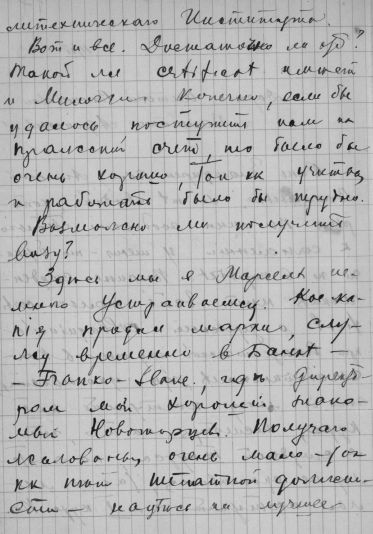 литехническаго Института.
Вот и все. Достаточно ли это?
Такой ли certificat имеет
и Милочка. Конечно, если бы
удалось поступить нам на
пражский счет, то было бы
очень хорошо, так как учиться
и работать было бы трудно.
Возможно ли получить
визу?
Здесь мы с Марселем не-
много устраиваемся. Кое ка-
кия продал марки, слу-
жу временно в Банке -
- Franko-Slave, где Дирекцо-
ром мой хороший знако-
мый Новоторжцев. Получаю
жалованья очень мало - так
как нет штатной должно-
сти - надеюсь на лучшее